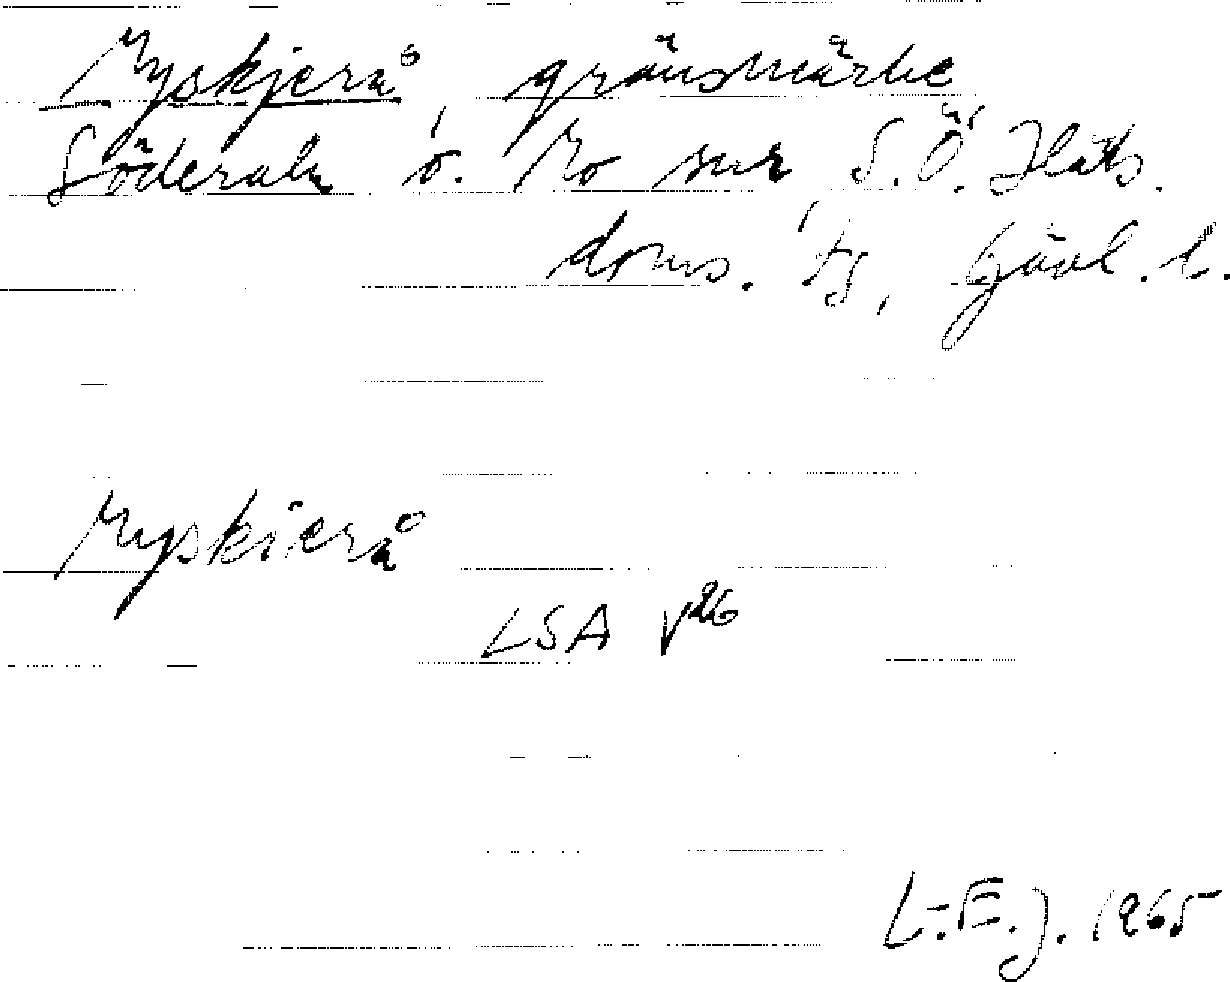 Myskjerå, gränsmärke
Söderala o. Mo snr, S.Ö. Häls.
doms. tg, Gävl. l.
Myskierå
LSA V26
L.E.J. 1965